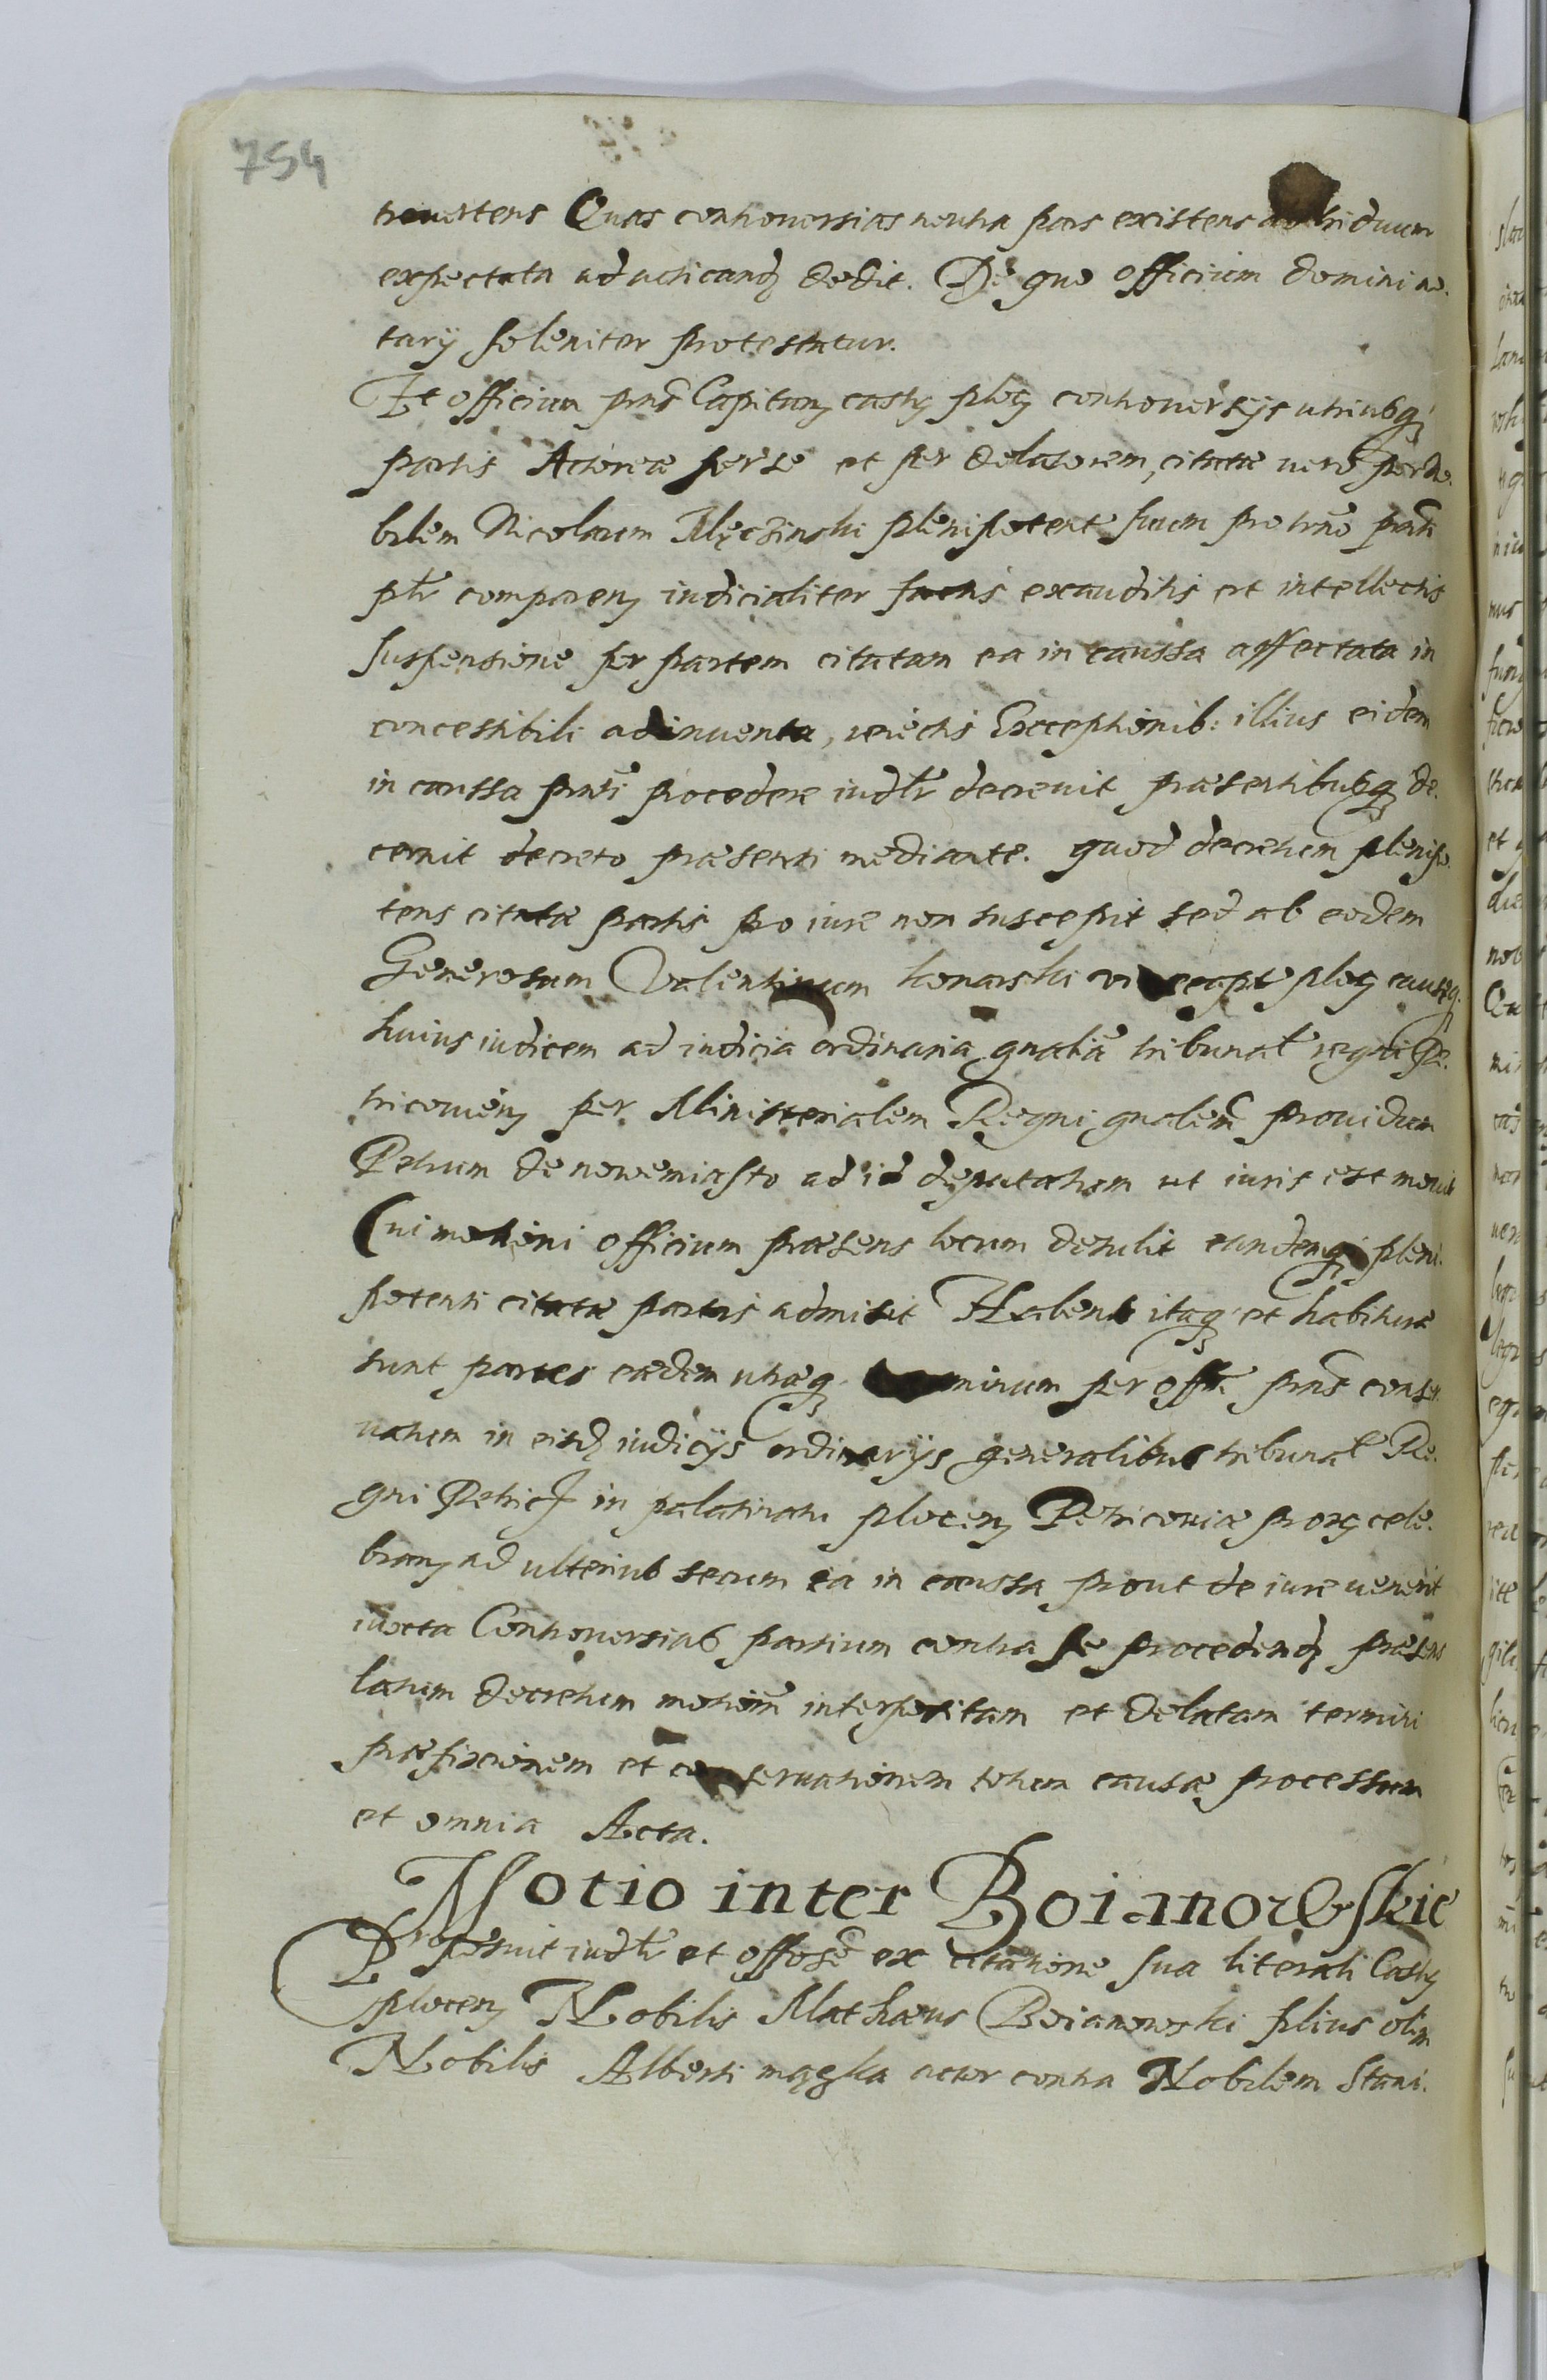 754
trouertens Quas controuersias neutra pars existens ad triduum
expectata ad acticand dedit. De quo officium domini no.
tarij soleniter protestatur.
Et officium pns Capitan castr ploc controuersijs utriusq
partis Actoreæ per se et per delatorem, citatæ uero per no.
bilem Nicolaum Męczinski plenipotente suum pro trno pnti
ptr comparen iudicialiter factis exauditis et intellectis
suspensione per partem citatam ea in caussa affectata in
concessibili adinuenta, reiectis Exceptionib: illius eidem
in caussa pnti procedere iudtr decreuit præsentibusq de.
cernit decreto præsenti mediante. quod decretum plenipo.
tens citatæ partis pro iure non suscepit sed ab eodem
Generosum Valentinum konarski vicecapt ploc causæq.
huius iudicem ad iudicia ordinaria gnalia tribunal regni Pe.
tricouien per Ministerialem Regni gnalem prouidum
Petrum de nowemiasto ad id deputatum ut iuris est mouit
Cui motioni officium præsens locum detulit eandemq pleni.
potenti citatæ partis admisit Habent itaq et habituræ
sunt partes eædem utræq terminum per offm pns conser.
uatum in eisd iudicijs ordinarijs generalibus tribunal Re.
gni Petric in palatinatu plocen Petricouiæ prox cele.
bran ad ulterius secum ea in caussa prout de iure uenerit
iuxta Controuersias partium contra se procedend præsens
latum decretum motionem interpositam et delatam termini
præfixionem et conseruationem totum causæ processum
et omnia Acta.
Motio inter Boianowskie
Proposuit iudtr et opposse ex citatione sua literali Castr
plocen Nobilis Mathæus Boianowski filius olim
Nobilis Alberti mągka actor contra Nobilem Stani.